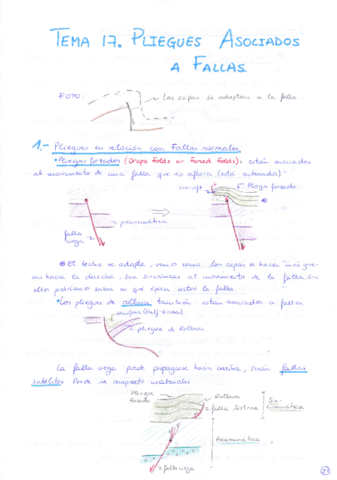 TEMA 17. PLIEGUES ASOCIADOS
A FALLAS.
FOTO:
Las capas se adaptan a la falla
1.- Pliegues en relación con Fallas normales.
• Pliegues forzados (Drape folds or Forced folds): están asociados
al movimiento de una falla que no aflora (está enterrada).
Pliegue forzado
falla
ciega
prenmática
El techo se adapta, vemos como las capas se hacen más grue-
sas hacia la derecha, son sincrónicas al movimiento de la falla, con
ellas podríamos saber en que época actuó la falla
• Los pliegues de rollover también están asociados a fallas
pliegues de Rollover
La falla ciega puede propagarse hacia arriba, serán fallas
satélites. Puede ir rompiendo materiales
Pliegue
forzado
Rollover
falla lístrica
Sin-
cinemática
Precinemática
falla ciega